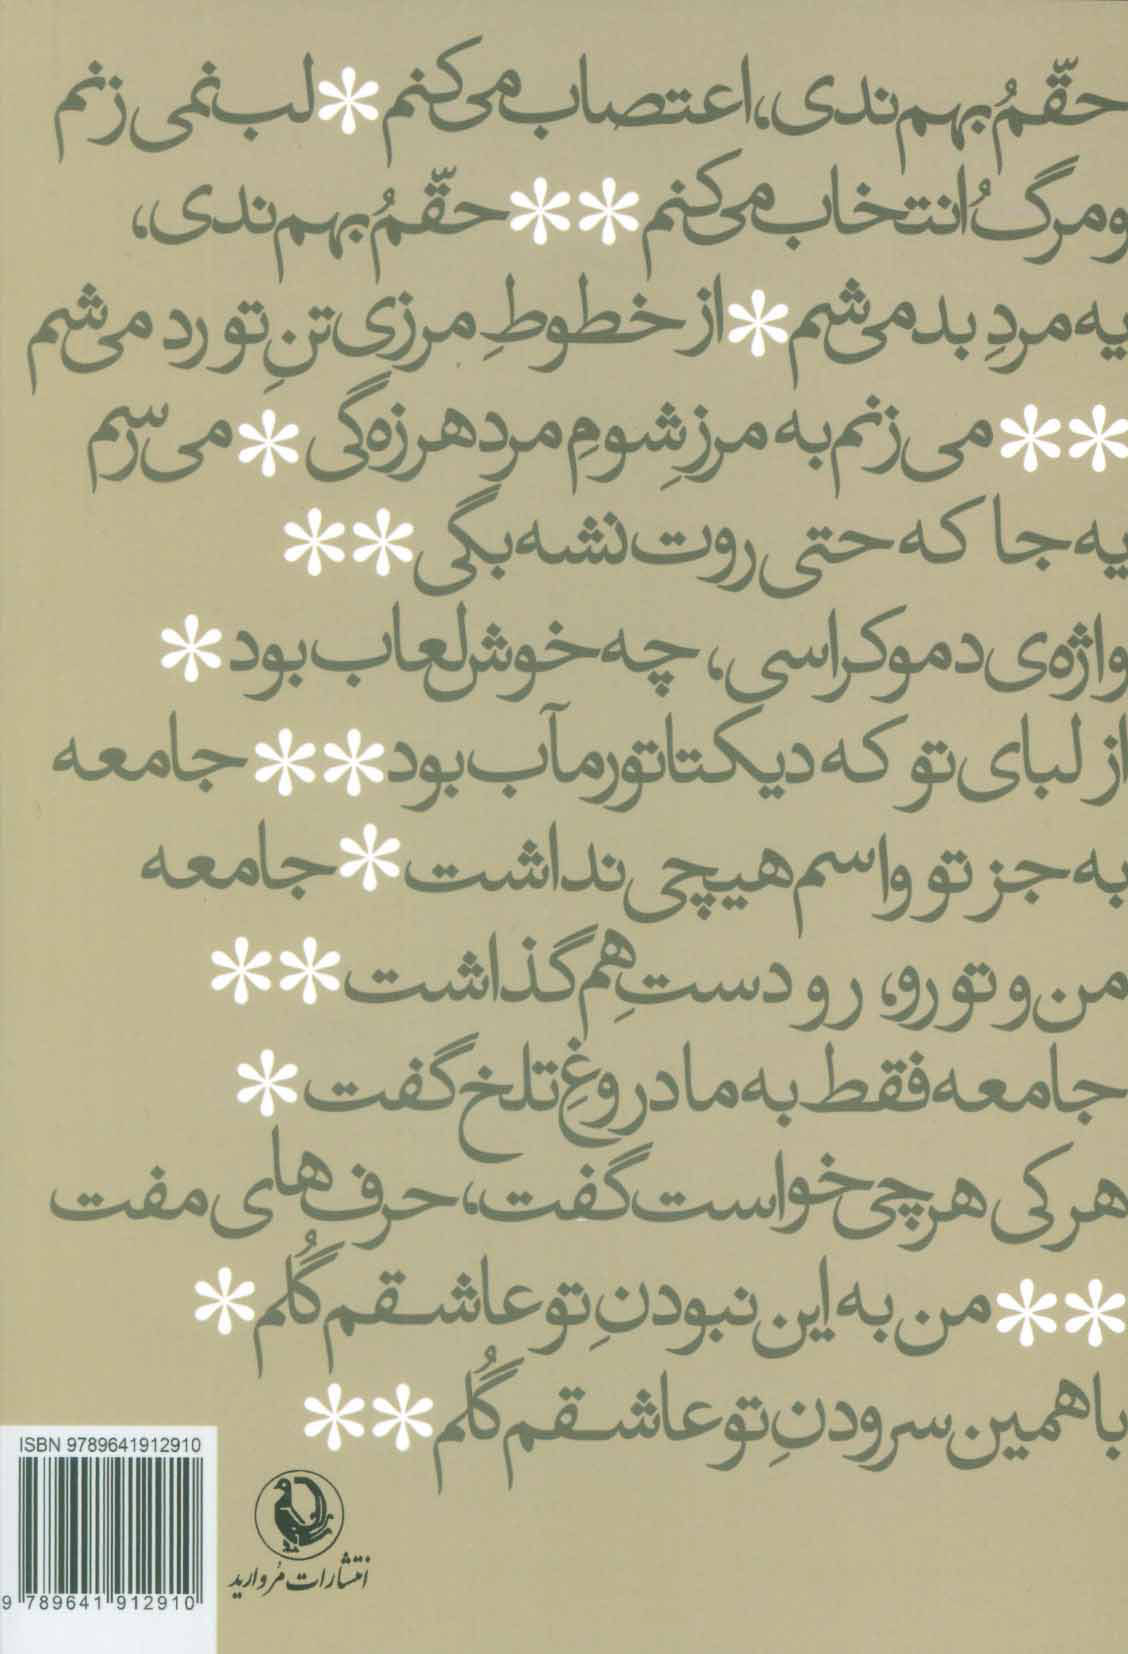 حقّمُ بهم ندی، اعتصاب می‌کنم * لب نمی زنم
و مرگُ انتخاب می‌کنم ** حقّمُ بهم ندی،
یه مردِ بد می‌شم * از خطوطِ مرزی تنِ تو رد می‌شم
** می زنم به مرزِ شومِ مرد هرزه‌گی * می‌رسم
یه جا که حتی روت نشه بگی **
واژه‌ی دموکراسی، چه خوش لعاب بود *
از لبای تو که دیکتاتور مآب بود ** جامعه
به جز تو واسم هیچی نداشت * جامعه
من و تو رو، رو دستِ هم گذاشت **
جامعه فقط به ما دروغِ تلخ گفت *
هر کی هر چی خواست گفت، حرف های مفت
** من به این نبودنِ تو عاشقم گُلم *
با همین سرودنِ تو عاشقم گُلم **
ISBN 9789641912910
9 789641 912910
انتشارات مُروارید